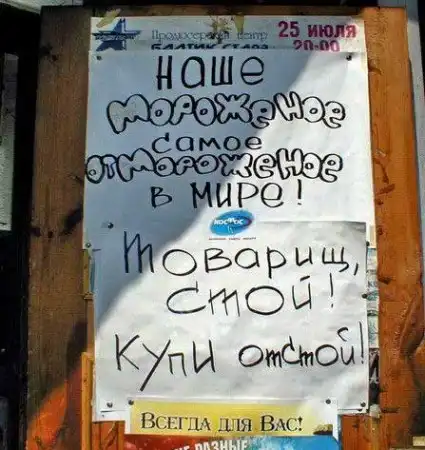 Продюсерский центр
25 июля
БАЛТИК СТАР
20-00
наше
мороженое
самое
отмороженое
в мире!
КОСМОС
Товарищ,
стой!
Купи отстой!
ВСЕГДА ДЛЯ ВАС!
РАЗНЫЕ